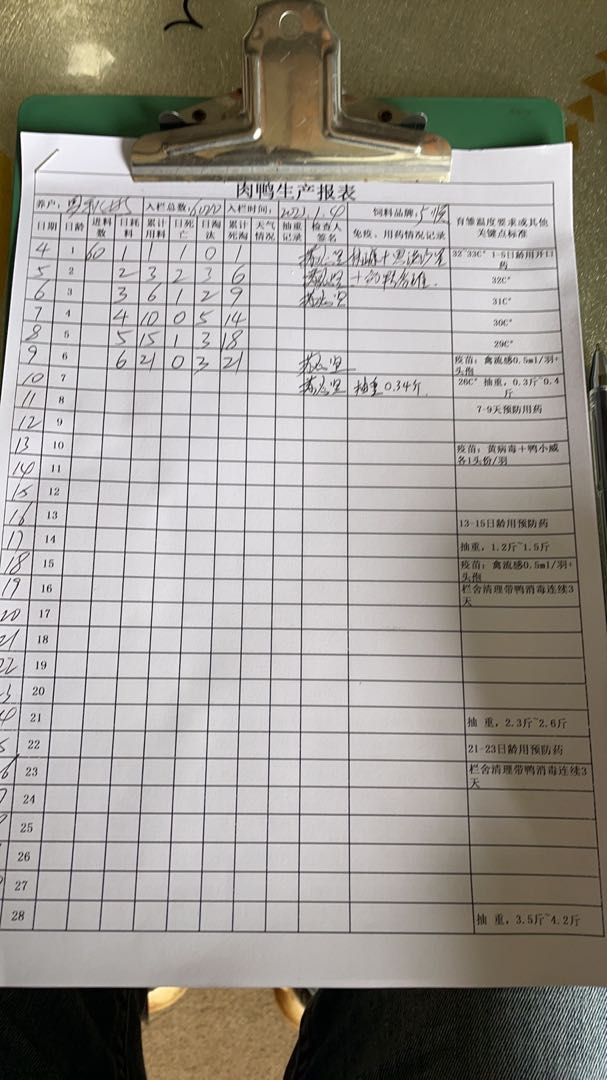 肉鸭生产报表
养户: 入栏总数: 入栏时间: 2022.1.4 饲料品牌:
日期 日龄 进料数 日耗料 累计用料 日死亡 日淘汰 累计死淘 天气情况 抽重记录 检查人签名 免疫、用药情况记录 育雏温度要求或其他关键点标准
4 1 60 1 1 1 0 1 32~33C° 1-5日龄用开口药
5 2 2 3 2 3 6 32C°
6 3 3 6 1 2 9 31C°
7 4 4 10 0 5 14 30C°
8 5 5 15 1 3 18 29C°
9 6 6 21 0 3 21 疫苗:禽流感0.5ml/羽+头孢
10 7 抽重0.34斤. 28C° 抽重,0.3斤~0.4斤
11 8 7-9天预防用药
12 9
13 10 疫苗:黄病毒+鸭小威各1头份/羽
14 11
15 12
16 13 13-15日龄用预防药
17 14 抽重,1.2斤~1.5斤
18 15 疫苗:禽流感0.5ml/羽+头孢
19 16 栏舍清理带鸭消毒连续3天
20 17
21 18
22 19
3 20
4 21 抽 重,2.3斤~2.6斤
5 22 21-23日龄用预防药
6 23 栏舍清理带鸭消毒连续3天
24
25
26
27
28 抽 重,3.5斤~4.2斤